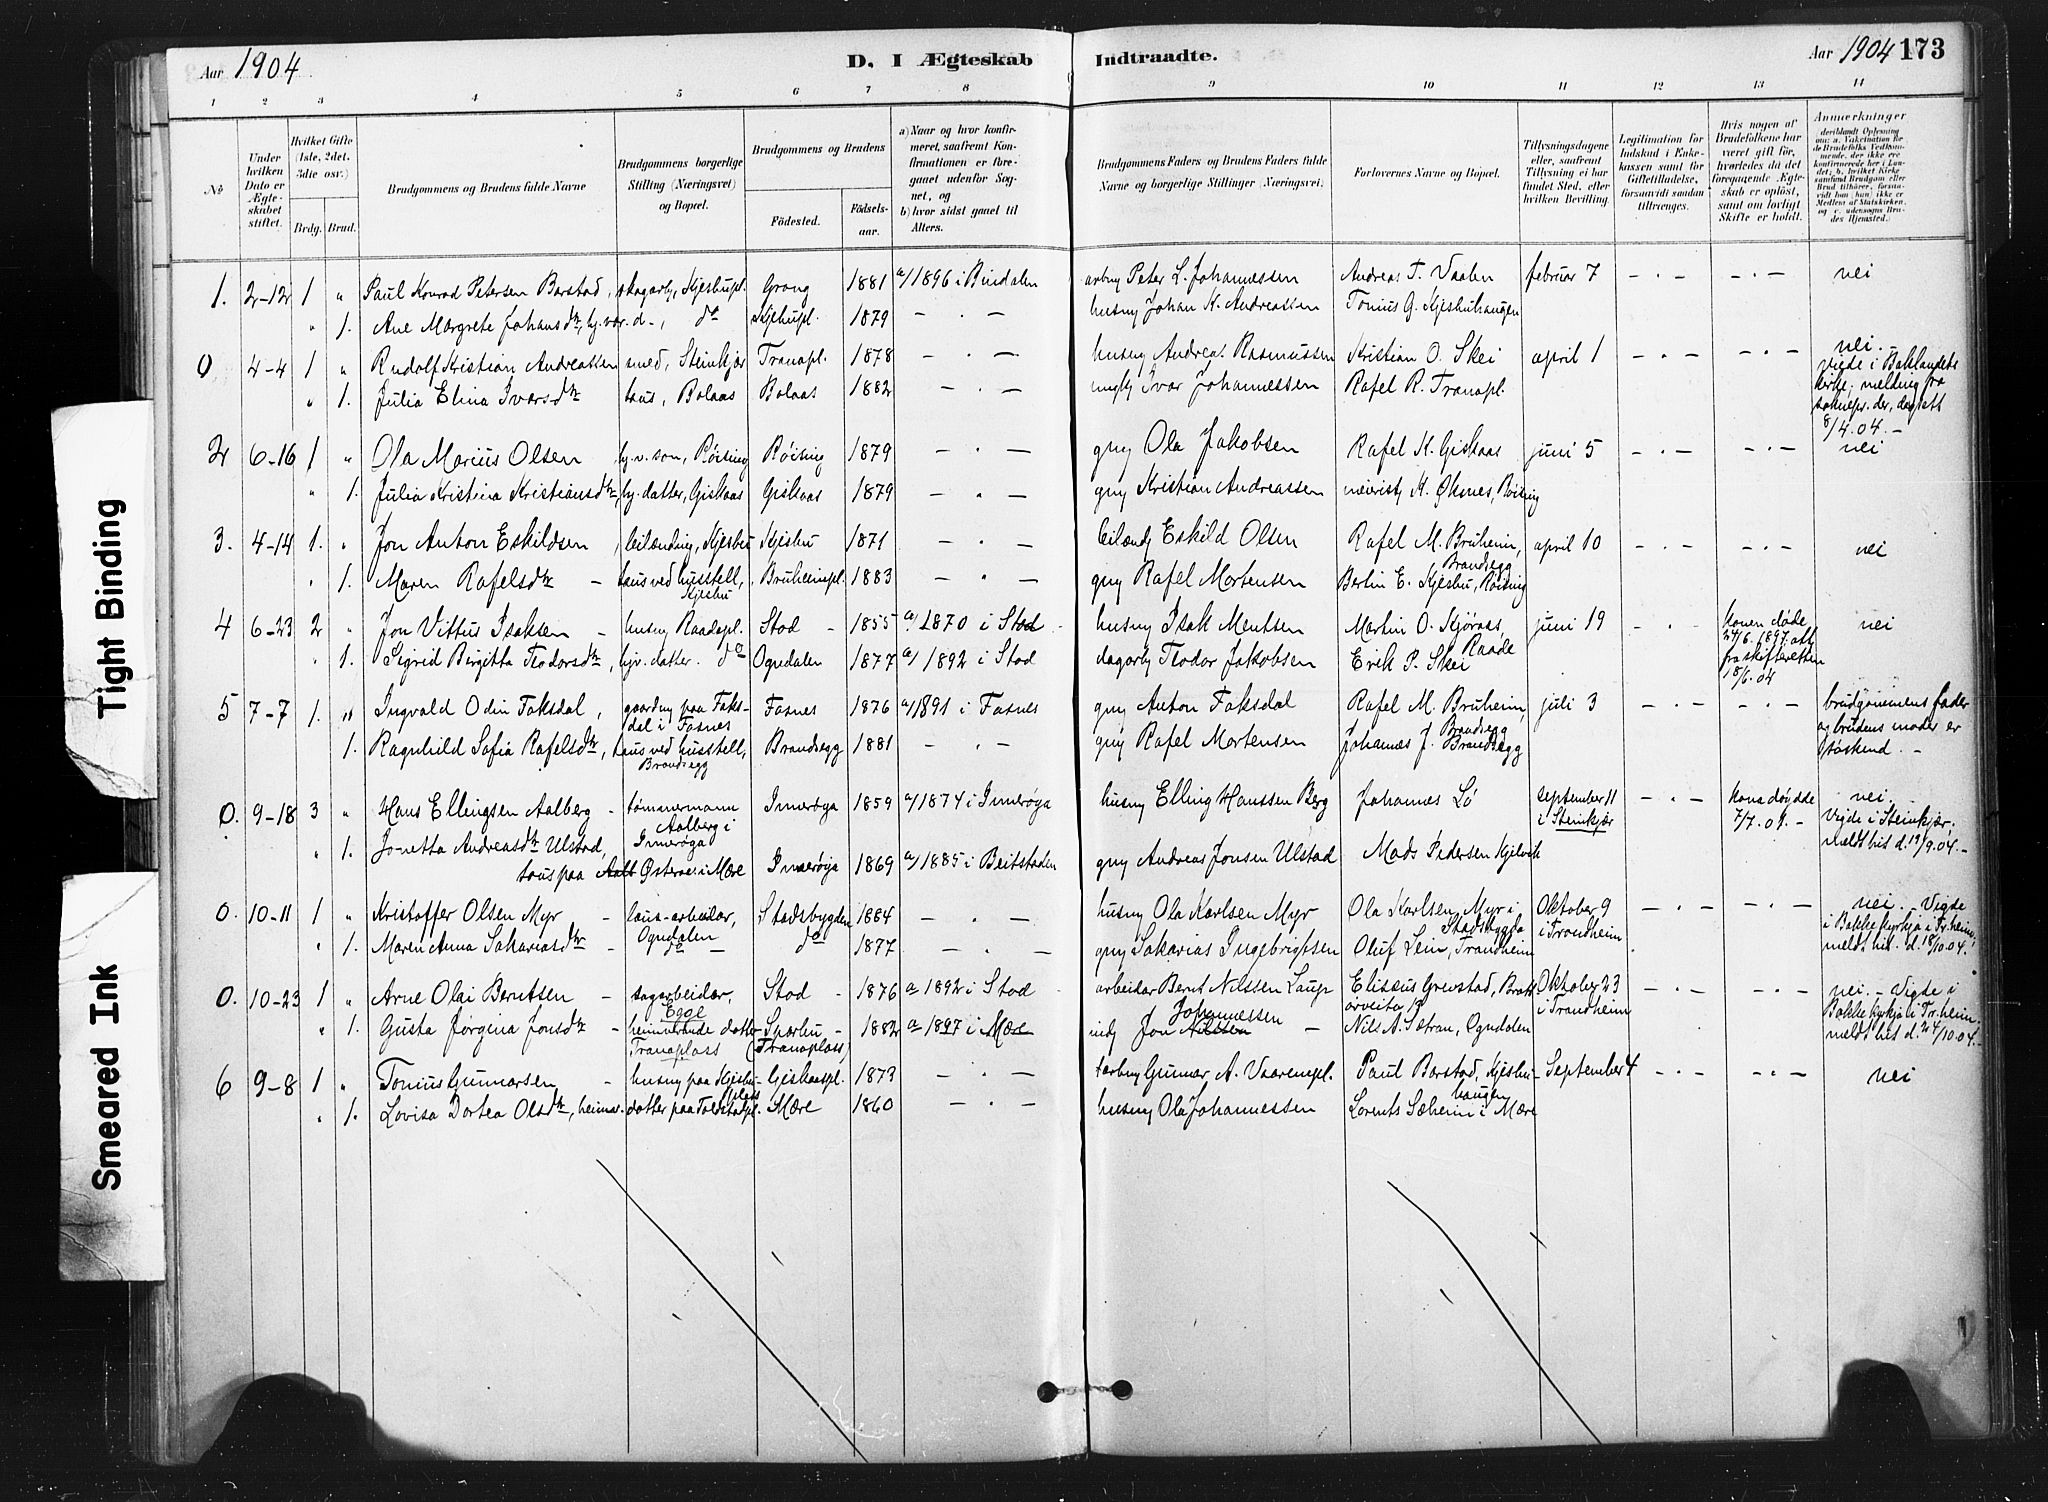 Aar 1904 D. I Ægteskab Indtraadte. Aar 1904 173
1 2 3 4 5 6 7 8 9 10 11 12 13 14
No
Under hvilken Dato er Ægteskabet stiftet.
Hvilket Gifte (1ste, 2det, 3die osv.)
Brdg. Brud.
Brudgommens og Brudens fulde Navne
Brudgommens borgerlige Stilling (Næringsvei) og Bopæl.
Brudgommens og Brudens
Fødested. Fødselsaar.
a) Naar og hvor konfirmeret, saafremt Konfirmationen er foregaaet udenfor Sognet, og
b) hvor sidst gaaet til Alters.
Brudgommens Faders og Brudens Faders fulde Navne og borgerlige Stillinger (Næringsvei).
Forlovernes Navne og Bopæl.
Tillysningsdagene eller, saafremt Tillysning ei har fundet Sted, efter hvilken Bevilling.
Legitimation for Indskud i Enkekassen samt for Giftetilladelse, forsaavidt saadan tiltrænges.
Hvis nogen af Brudefolkene har været gift før, hvorledes da det foregaaende Ægteskab er opløst, samt om lovligt Skifte er holdt.
Anmerkninger
1. 2-12 1 " Paul Konrad Petersen Barstad, skogarb, Kjeshupl. Grong 1881 a/1896 i Bindalen arbm Peter L. Johannessen Andreas T. Vaalen februar 7 - . - - . - nei
" 1. Ane Margrete Johansdtr, hj. vær. d-, do Kjeshupl. 1879 - . - husm Johan K. Andreassen Tonius G. Kjeshuhaugen
0 4-4 1 " Rudolf Kristian Andreassen smed, Steinkjær Tranapl. 1878 - . - husm Andreas Rasmussen Kristian O. Skei april 1 - . - - . - nei. -
" 1. Julia Elina Ivarsdtr taus, Bolaas Bolaas 1882 - . - Ivar Johannessen Rafel R. Tranapl. vigde i Baklandets kirke; melding fra soknepr. der, dagsett 8/4.04. -
2 6-16 1 " Ola Marius Olsen hj. v. son, Røising Røising 1879 - . - gm Ola Jakobsen Rafel K. Giskaas juni 5 - . - - . - nei
" 1. Julia Kristina Kristiansdtr, hj. datter, Giskaas Giskaas 1879 - . - gm Kristian Andreassen K. Øksnes, Røising
3. 4-14 1. " Jon Anton Eskildsen leilænding, Kjeshu Kjeshu 1871 - . - leilænd Eskild Olsen Rafel M. Bruheim, Brandsegg april 10 - . - - . - nei
" 1. Maren Rafelsdtr - taus ved husstell, Kjeshu Bruheimpl. 1883 - . - gm Rafel Mortensen Berlin E. Kjeshu, Røising
4 6-23 2 " Jon Vittus Isaksen - husm Raadapl. Stod - 1855 a/1870 i Stod - husm Isak Mentsen Martin O. Kjøraas, Raade juni 19 - . - konen døde 24/6. 1897. att fra skifteretten 18/6.04 nei
" 1. Sigrid Birgitta Teodorsdtr, hjv. datter. do Ogndalen 1877 a/ 1892 i Stod dagarb Teodor Jakobsen Erik P. Skei
5 7-7 1. " Ingvald Odin Faksdal, gaardm paa Faksdal i Fosnes Fosnes 1876 a/1891 i Fosnes gm Anton Faksdal Rafel M. Bruheim, Brandsegg juli 3 - . - - . - brudgommens fader og brudens moder er søskend. -
1. Ragnhild Sofia Rafelsdtr, taus ved husstell, Brandsegg Brandsegg 1881 - . - gm Rafel Mortensen Johannes J. Brandsegg
0. 9-18 3 " Hans Ellingsen Aalberg - tømmermann Aalberg i Inderøya Inderøya 1859 a/1874 i Inderøya husm Elling Hanssen Berg Johannes Lø september 11 i Steinkjær - . - kona døydde 7/7.01. - nei. - Vigde i Steinkjær; meldt hit d. 19/9.04. -
" 1. Jonetta Andreasdtr Ulstad, taus paa Østeraas i Mære Inderøya 1869 a/1885 i Beitstaden gm Andreas Jonsen Ulstad Mads Pedersen Kjelvik
0. 10-11 1 " Kristoffer Olsen Myr - laus-arbeidar, Ogndalen Stadsbygden 1884 - . - husm Ola Karlsen Myr Ola Karlsen Myr i Stadsbygda Oktober 9 i Trondheim - . - - . - nei. - Vigde i Bakke kyrkja i Tr.heim; meldt hit d. 18/10.04. -
" 1. Maren Anna Sakariasdtr - do - do 1877 - . - gm Sakarias Ingebrigtsen Oluf Lein, Trondheim
0. 10-23 1 " Arne Olai Berntsen - sagarbeidar, Egge Stod - 1876 a 1892 i Stod arbeidar Bernt Nilssen Laup Elisæus Grevstad, Oktober 23 i Trondheim - . - - . - nei. - Vigde i Bakke kyrkja i Tr.heim meldt hit d. 24/10.04. -
" 1. Gusta Jørgina Jonsdtr - heimverande datter Tranaplass Sparbu - (Tranaplass) 1882 a 1897 i Mære Jon Nilssen Johannessen - Nils A. Sætran, Ogndalen
6 9-8 1 " Tonius Gunnarsen - husm paa Kjeshuplass Giskaaspl. 1873 - . - arbm Gunnar A. Vaarempl. Paul Barstad, Kjeshuhaugen September 4 - . - - . - nei
" 1. Lovisa Dortea Olsdtr, heimav. datter paa Tolstadpl. Mære 1860 - . - husm Ola Johannessen Lorents Sæheim i Mære
Tight Binding
Smeared Ink